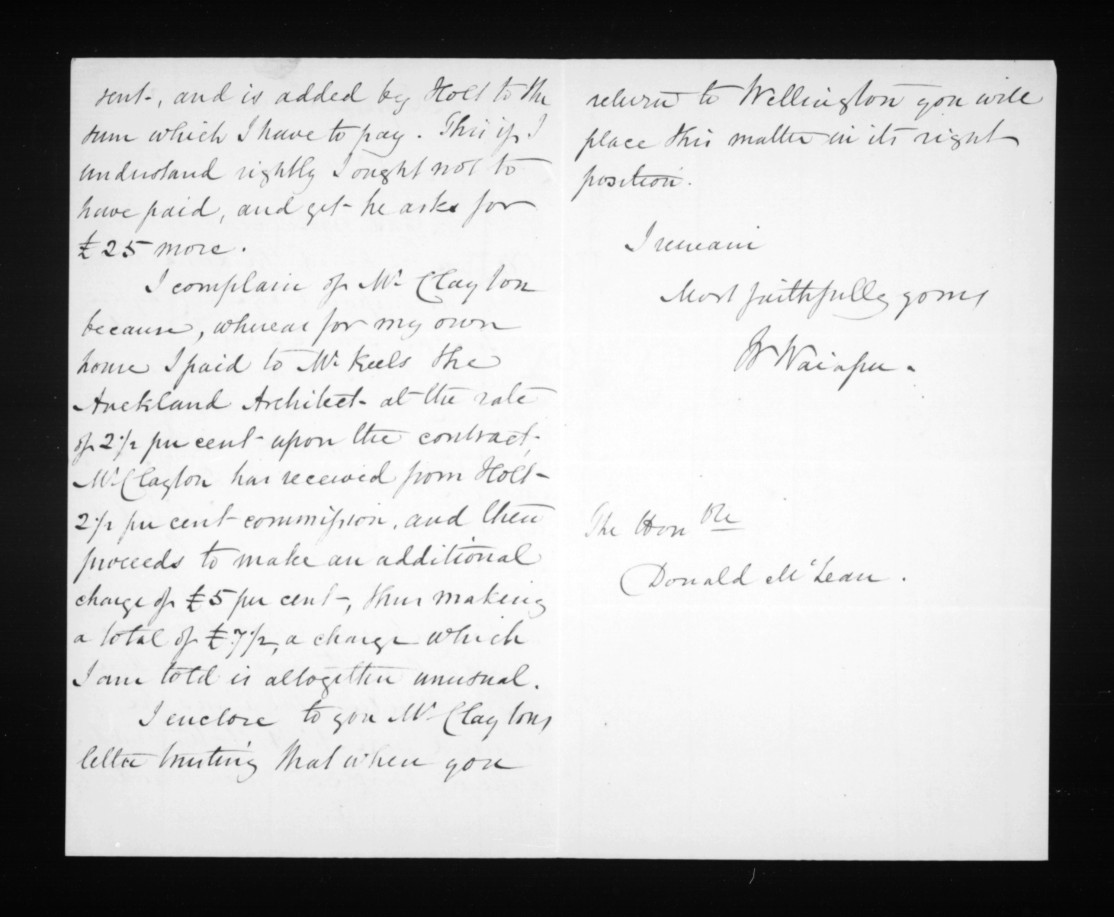 sent-, and is added by Holt to the
sum which I have to pay. This if I
understand rightly I ought not to
have paid, and yet he asks for
£25 more.
I complain of Mr Clayton
because, whereas for my own
house I paid to Mr Keels the
Auckland Architect at the rate
of 2½ per cent upon the contract,
Mr Clayton has received from Holt
2½ per cent commission, and then
proceeds to make an additional
charge of £5 per cent-, thus making
a total of £7½, a charge which
I am told is altogether unusual.
I enclose to you Mr Claytons
letter trusting that when you
return to Wellington you will
place this matter in its right
position.
I remain
Most faithfully yours
W Waiapu.
The Honble
Donald McLean.